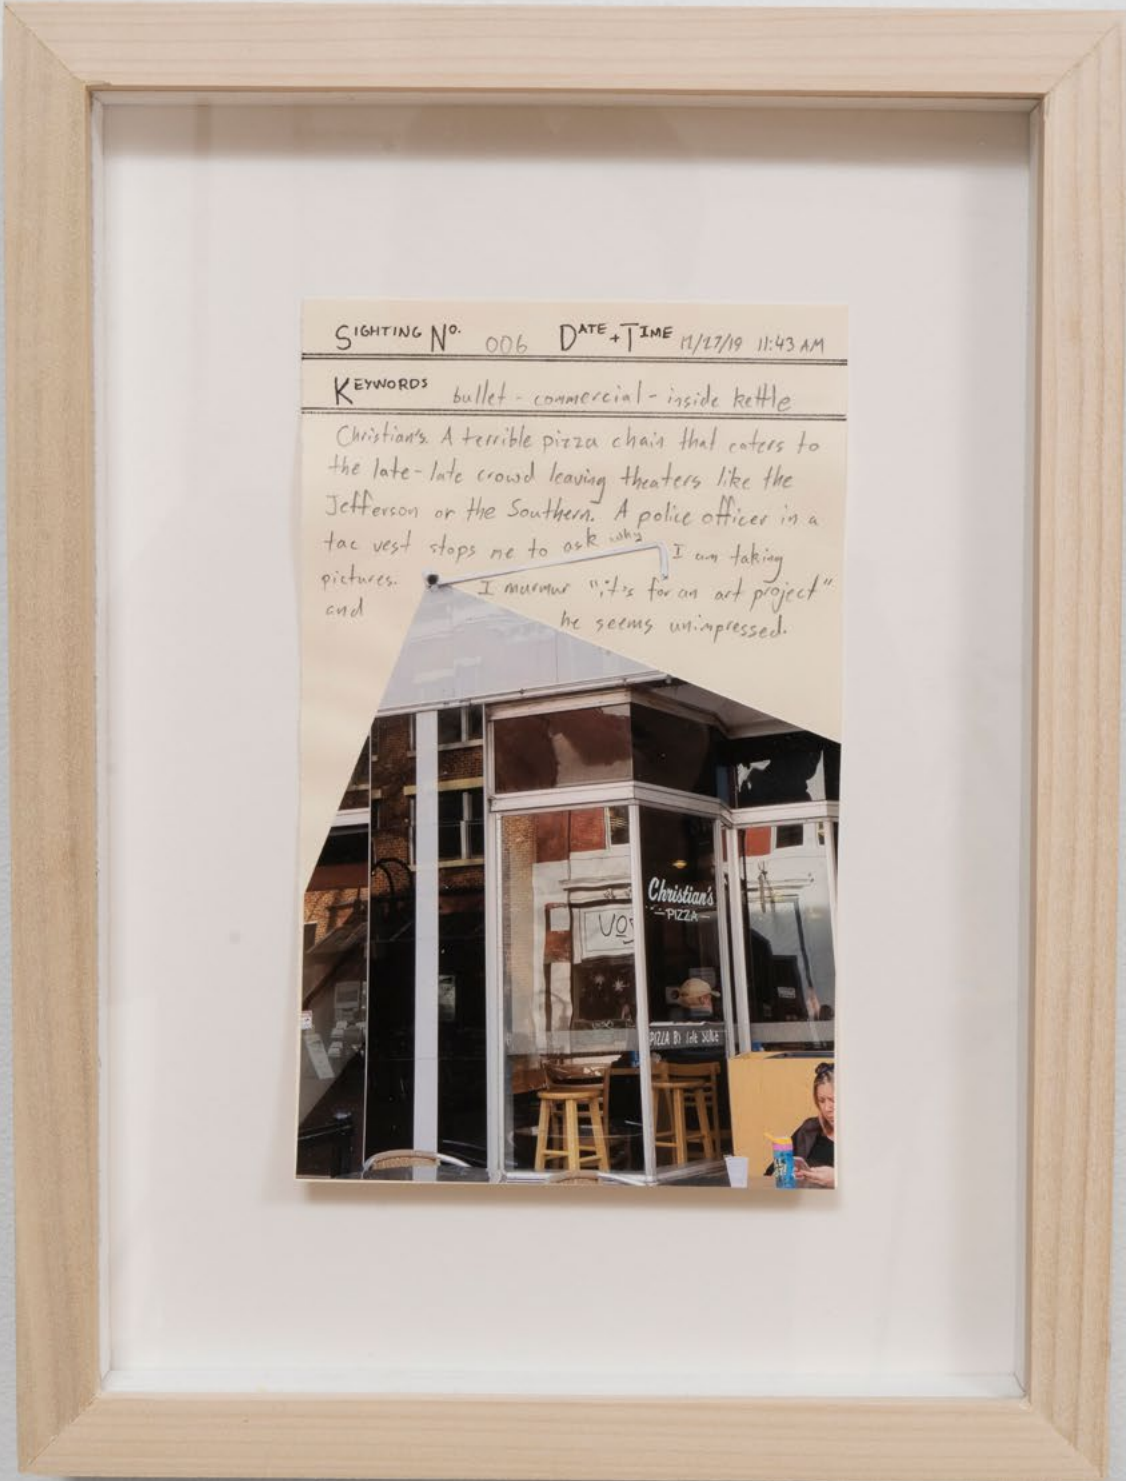 SIGHTING No. 006 DATE + TIME 11/27/19 11:43 AM
KEYWORDS bullet - commercial - inside kettle
Christian's. A terrible pizza chain that caters to
the late-late crowd leaving theaters like the
Jefferson or the Southern. A police officer in a
tac vest stops me to ask why I am taking
pictures. I murmur "it's for an art project"
and he seems unimpressed.
Christian's
PIZZA
PIZZA BY the SLICE